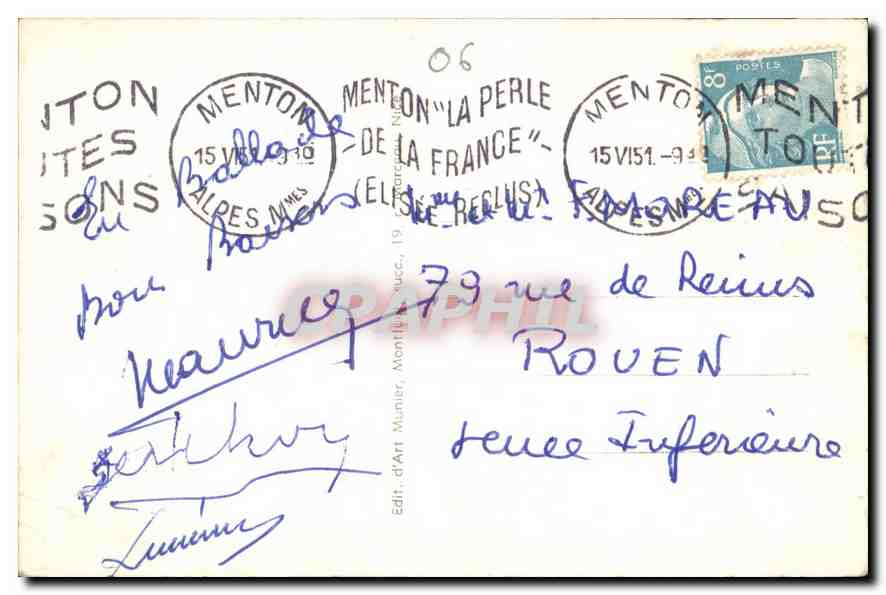 06
NTON
UTES
SONS
MENTON
15 VI 51 -9 30
ALPES Mmes
MENTON "LA PERLE
- DE LA FRANCE" -
(ELISÉE RECLUS)
MENTON
15 VI 51 -9 30
ALPES Mmes
MEN
TO
SO
8F
POSTES
RF
En Ballade
Bons Baisers
Maurice
MOREAU
79 rue de Reims
ROUEN
Seine Inférieure
Edit. d'Art Munier, Nice
CPAPHIL